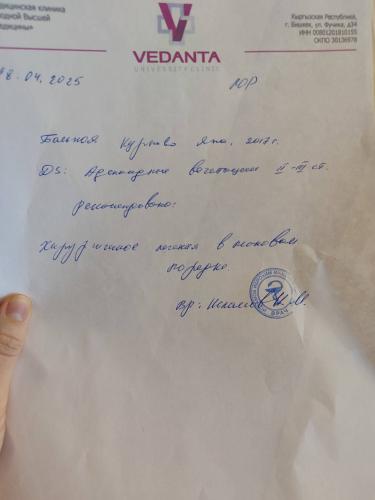 медицинская клиника
родной Высшей
медицины»
VEDANTA
UNIVERSITY CLINIC
Кыргызская Республика,
г. Бишкек, ул. Фучика, д34
ИНН 00801201810155
ОКПО 30136978
18.04.2025
ЛОР
Больная Яна, 2017г.
DS: Аденоидные вегетации II-III ст.
Рекомендовано:
Хирургическое лечения в плановом
порядке.
Вр: И.М.
ВРАЧ